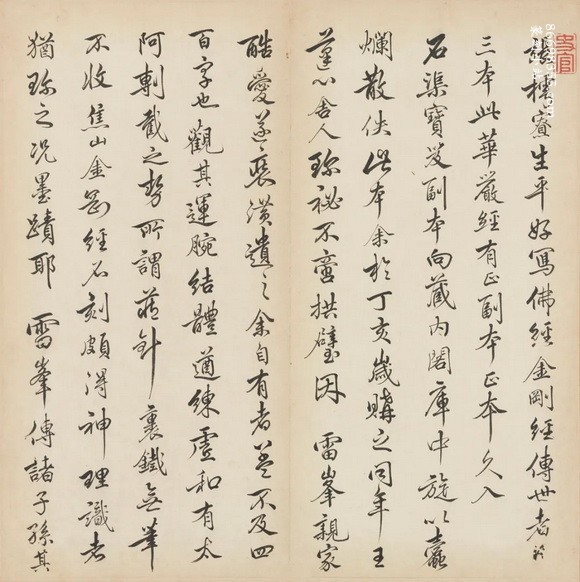 張樗寮生平好寫佛經金剛經傳世者祇
三本此華嚴經有正副本正本久入
石渠寶笈副本向藏內閣庫中旋以蠹
爛散佚此本余於丁亥歲購之同年王
蓮心舍人珍祕不啻拱璧因 雷峯親家
酷愛遂裝潢遺之余自有者蓋不及四
百字也觀其運腕結體遒練虛和有太
阿剸截之勢所謂藏針裹鐵無筆
不收焦山金剛經石刻頗得神理識者
猶珍之況墨蹟耶 雷峯傳諸子孫其